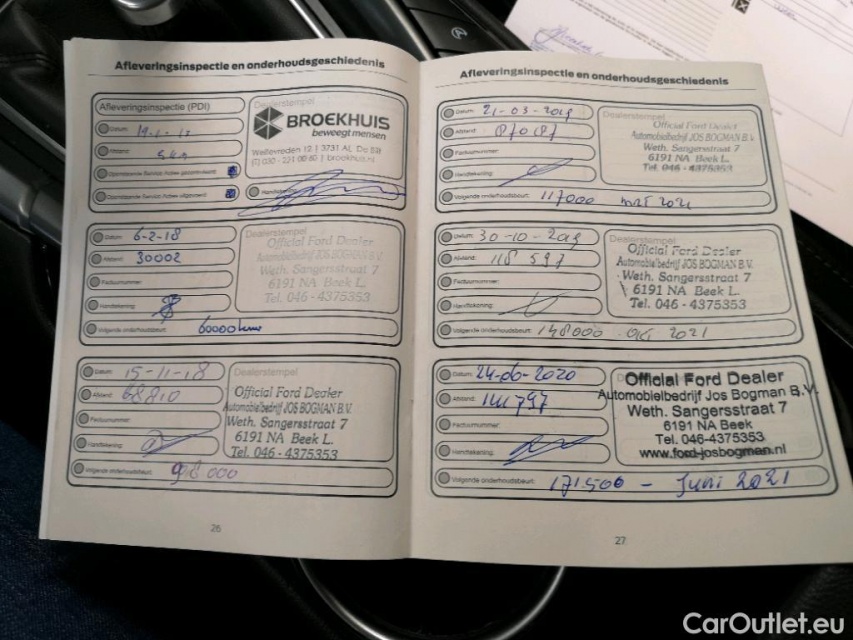 Afleveringsinspectie en onderhoudsgeschiedenis
Afleveringsinspectie (PDI)
Datum:
Afstand:
Dealerstempel
BROEKHUIS
beweegt mensen
Weltevreden 12 | 3731 AL De Bilt
broekhuis.nl
Datum: 6-2-18
Afstand: 30002
Factuurnummer:
Handtekening:
Volgende onderhoudsbeurt: 60000km
Dealerstempel
Official Ford Dealer
Automobielbedrijf JOS BOGMAN B.V.
Weth. Sangersstraat 7
6191 NA Beek L.
Tel. 046 - 4375353
Datum: 15-11-18
Afstand: 68810
Factuurnummer:
Handtekening:
Volgende onderhoudsbeurt: 98000
Dealerstempel
Official Ford Dealer
Automobielbedrijf JOS BOGMAN B.V.
Weth. Sangersstraat 7
6191 NA Beek L.
Tel. 046 - 4375353
26
Afleveringsinspectie en onderhoudsgeschiedenis
Datum: 21-03-2019
Afstand: 87087
Factuurnummer:
Handtekening:
Volgende onderhoudsbeurt: 117000 mrt 2021
Dealerstempel
Official Ford Dealer
Automobielbedrijf JOS BOGMAN B.V.
Weth. Sangersstraat 7
6191 NA Beek L.
Tel. 046 - 4375353
Datum: 30-10-2019
Afstand: 118597
Factuurnummer:
Handtekening:
Volgende onderhoudsbeurt: 148000 okt 2021
Dealerstempel
Official Ford Dealer
Automobielbedrijf JOS BOGMAN B.V.
Weth. Sangersstraat 7
6191 NA Beek L.
Tel. 046 - 4375353
Datum: 24-06-2020
Afstand: 141797
Factuurnummer:
Handtekening:
Volgende onderhoudsbeurt: 171500 - Juni 2021
Official Ford Dealer
Automobielbedrijf Jos Bogman B.V.
Weth. Sangersstraat 7
6191 NA Beek
Tel. 046-4375353
www.ford-josbogman.nl
27
CarOutlet.eu